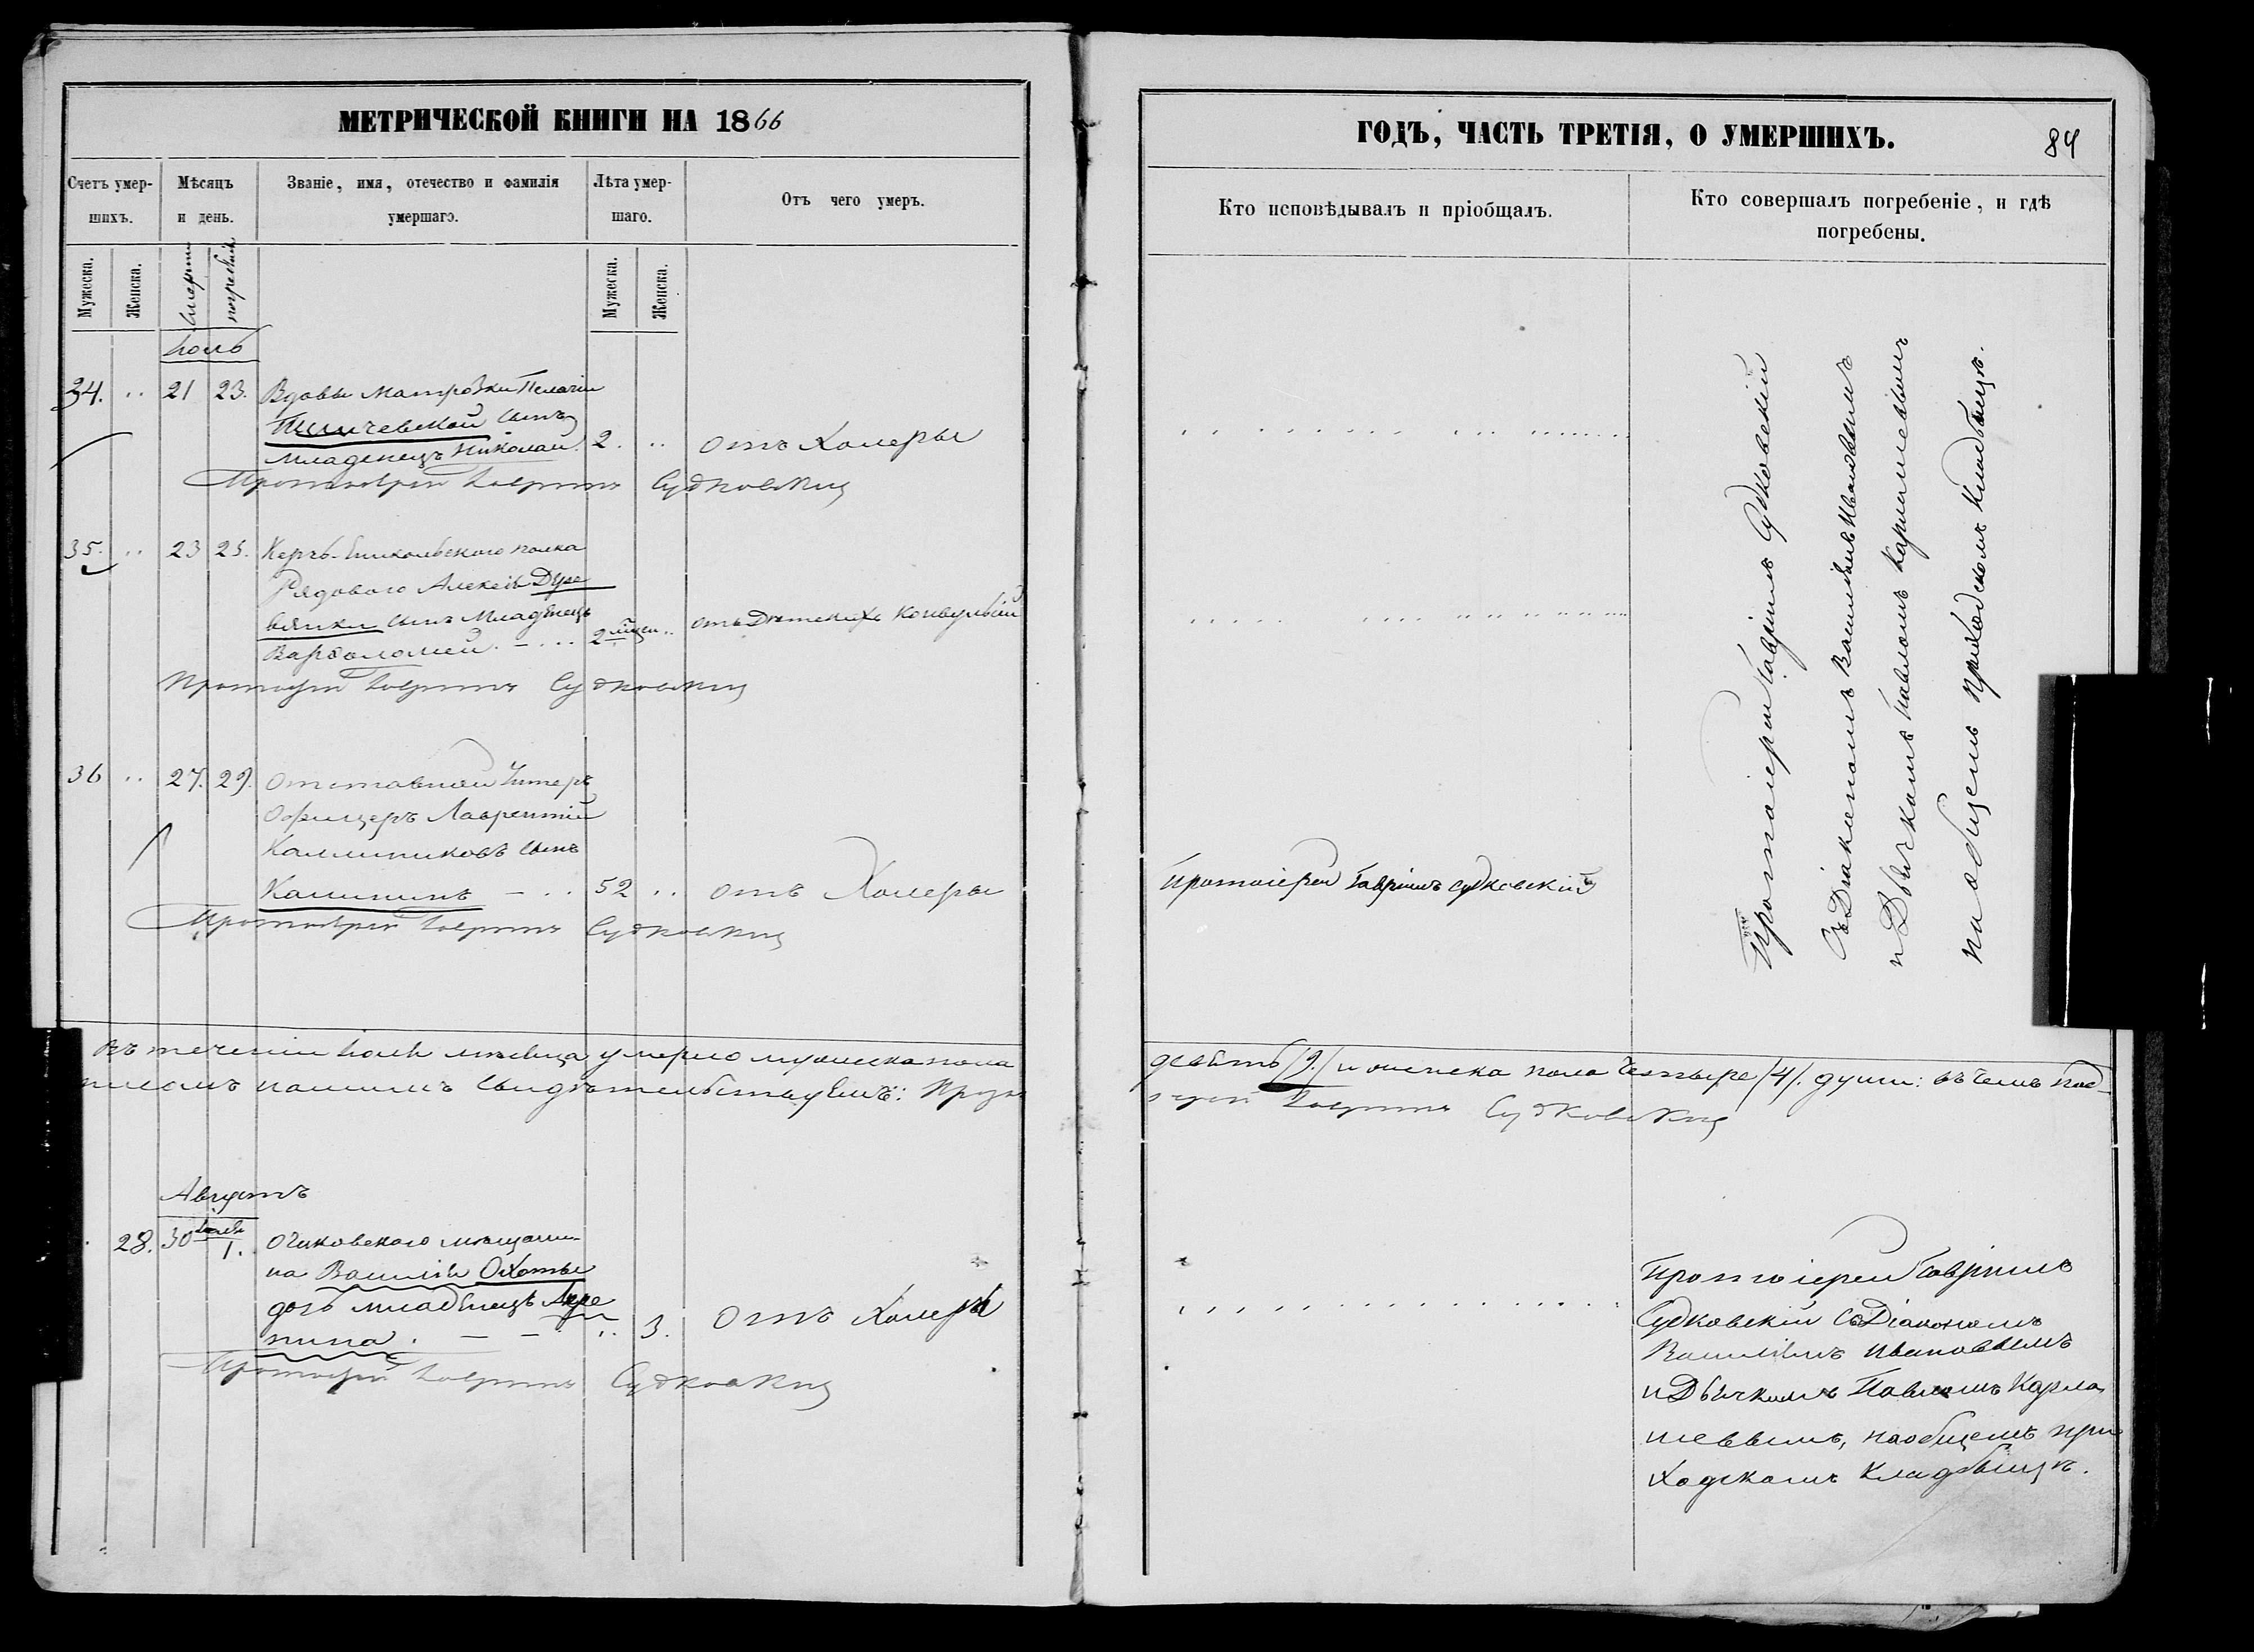 МЕТРИЧЕСКОЙ КНИГИ НА 1866
Счетъ умер-
шихъ.
Мѣсяцъ
и день.
Званіе, имя, отечество и фамилія
умершаго.
Лѣта умер-
шаго.
Отъ чего умеръ.
Мужеска.
Женска.
смерти
погребенія
Мужеска.
Женска.
Іюль
34. .. 21 23. Вдовы Матрозки Пелагіи
сынъ
младенецъ Николай. 2. .. отъ Холеры
Протоіерей Гавріилъ Судковскій
35. .. 23 25. Керчь-Еникольского полка
Рядового Алексѣя Дуре
вянки сынъ Младенецъ
Варѳоломей. – . .. 2 мѣсяц. .. отъ Дѣтскихъ конвульсій
Протоіерей Гавріилъ Судковскій
36 .. 27. 29. Отставной Унтеръ
Офицеръ Лаврентій
Каллиниковъ сынъ
Калининъ – .. 52 .. отъ Холеры
Протоіерей Гавріилъ Судковскій
Въ теченіи Іюля мѣсяца умерло мужеска пола
писомъ нашимъ свидѣтельствуемъ: Прото
Августъ
28. 30 Іюля 1. Очаковского мѣщани-
на Василія Охоты
дочь младенецъ Агре
пина. – – .. 3. Отъ Холеры
Протоіерей Гавріилъ Судковскій
ГОДЪ, ЧАСТЬ ТРЕТІЯ, О УМЕРШИХЪ.
84
Кто исповѣдывалъ и пріобщалъ.
Кто совершалъ погребеніе, и гдѣ
погребены.
Протоіерей Гавріилъ Судковскій
Съ Діакономъ Василіемъ Ивановымъ
и Дьячкомъ Павломъ Кармалевымъ
на общемъ приходскомъ кладбищѣ.
Протоіерей Гавріилъ Судковскій
девять /9./ и женска пола Четыре /4/. души: въ чемъ под-
іерей Гавріилъ Судковскій
Протоіерей Гавріилъ
Судковскій съ Діакономъ
Василіемъ Ивановымъ
и Дьячкомъ Павломъ Карма
левымъ, на общемъ при
ходскомъ кладбищѣ.